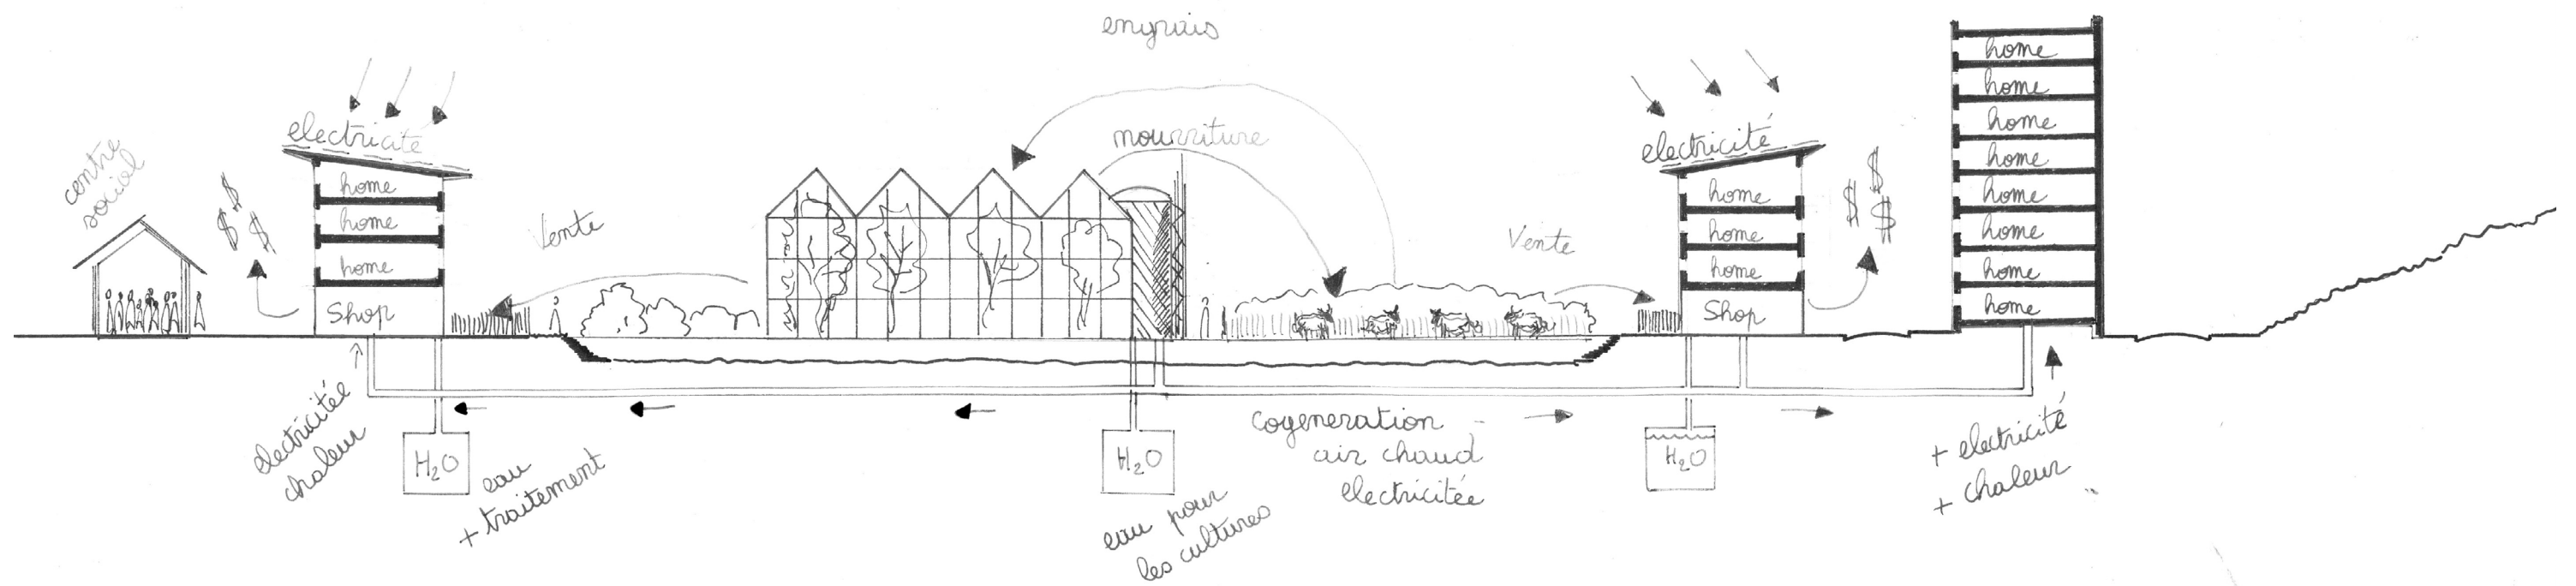 engrais
centre
social
$
$
$
electricité
home
home
home
Shop
Vente
nourriture
Vente
electricité
home
home
home
Shop
$
$
$
home
home
home
home
home
home
home
home
electricitée
chaleur
H₂O
eau
+ traitement
H₂O
eau pour
les cultures
cogeneration
air chaud
electricitée
H₂O
+ electricité
+ chaleur